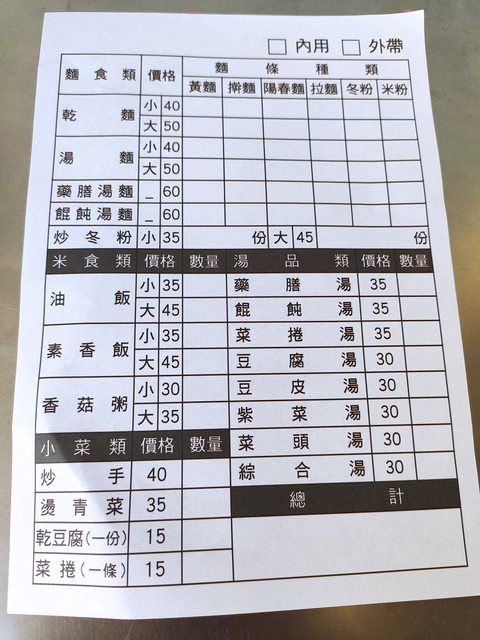 □ 內用 □ 外帶
麵食類 價格 麵條種類
黃麵 擀麵 陽春麵 拉麵 冬粉 米粉
乾麵 小 40
大 50
湯麵 小 40
大 50
藥膳湯麵 _ 60
餛飩湯麵 _ 60
炒冬粉 小 35 份 大 45 份
米食類 價格 數量 湯品類 價格 數量
油飯 小 35 藥膳湯 35
大 45 餛飩湯 35
素香飯 小 35 菜捲湯 35
大 45 豆腐湯 30
香菇粥 小 30 豆皮湯 30
大 35 紫菜湯 30
小菜類 價格 數量 菜頭湯 30
炒手 40 綜合湯 30
燙青菜 35 總計
乾豆腐(一份) 15
菜捲(一條) 15